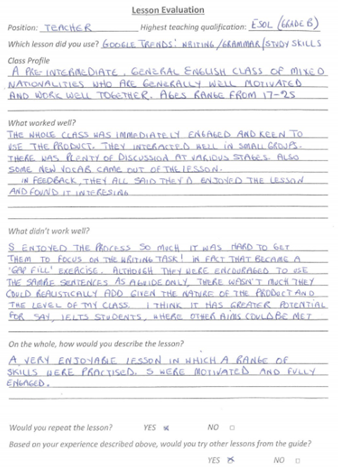 Lesson Evaluation
Position: TEACHER Highest teaching qualification: ESOL (GRADE B)
Which lesson did you use? GOOGLE TRENDS: WRITING/GRAMMAR/STUDY SKILLS
Class Profile
A PRE-INTERMEDIATE, GENERAL ENGLISH CLASS OF MIXED
NATIONALITIES WHO ARE GENERALLY WELL MOTIVATED
AND WORK WELL TOGETHER. AGES RANGE FROM 17-25
What worked well?
THE WHOLE CLASS WAS IMMEDIATELY ENGAGED AND KEEN TO
USE THE PRODUCT. THEY INTERACTED WELL IN SMALL GROUPS.
THERE WAS PLENTY OF DISCUSSION AT VARIOUS STAGES. ALSO
SOME NEW VOCAB CAME OUT OF THE LESSON.
IN FEEDBACK, THEY ALL SAID THEY'D ENJOYED THE LESSON
AND FOUND IT INTERESTING
What didn't work well?
S ENJOYED THE PROCESS SO MUCH IT WAS HARD TO GET
THEM TO FOCUS ON THE WRITING TASK! IN FACT THAT BECAME A
'GAP FILL' EXERCISE. ALTHOUGH THEY WERE ENCOURAGED TO USE
THE SAMPLE SENTENCES AS A GUIDE ONLY, THERE WASN'T MUCH THEY
COULD REALISTICALLY ADD GIVEN THE NATURE OF THE PRODUCT AND
THE LEVEL OF MY CLASS. I THINK IT HAS GREATER POTENTIAL
FOR SAY, IELTS STUDENTS, WHERE OTHER AIMS COULD BE MET
On the whole, how would you describe the lesson?
A VERY ENJOYABLE LESSON IN WHICH A RANGE OF
SKILLS WERE PRACTISED. S WERE MOTIVATED AND FULLY
ENGAGED.
Would you repeat the lesson? YES NO
Based on your experience described above, would you try other lessons from the guide?
YES NO